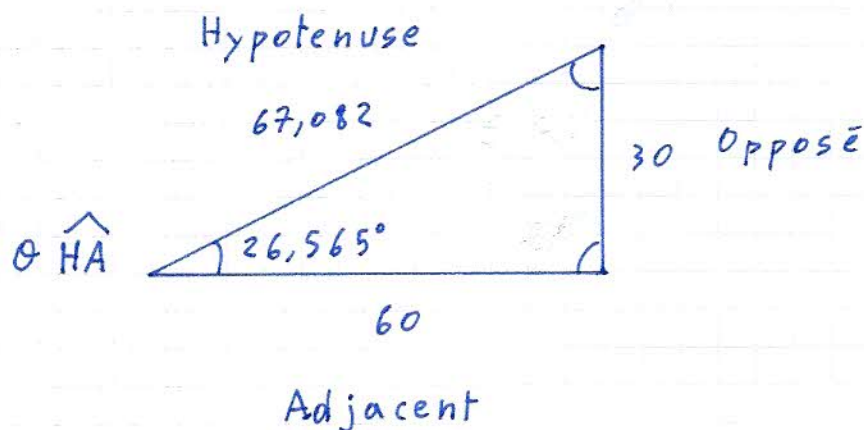 Hypotenuse
67,082
30 Opposé
θ HA
26,565°
60
Adjacent